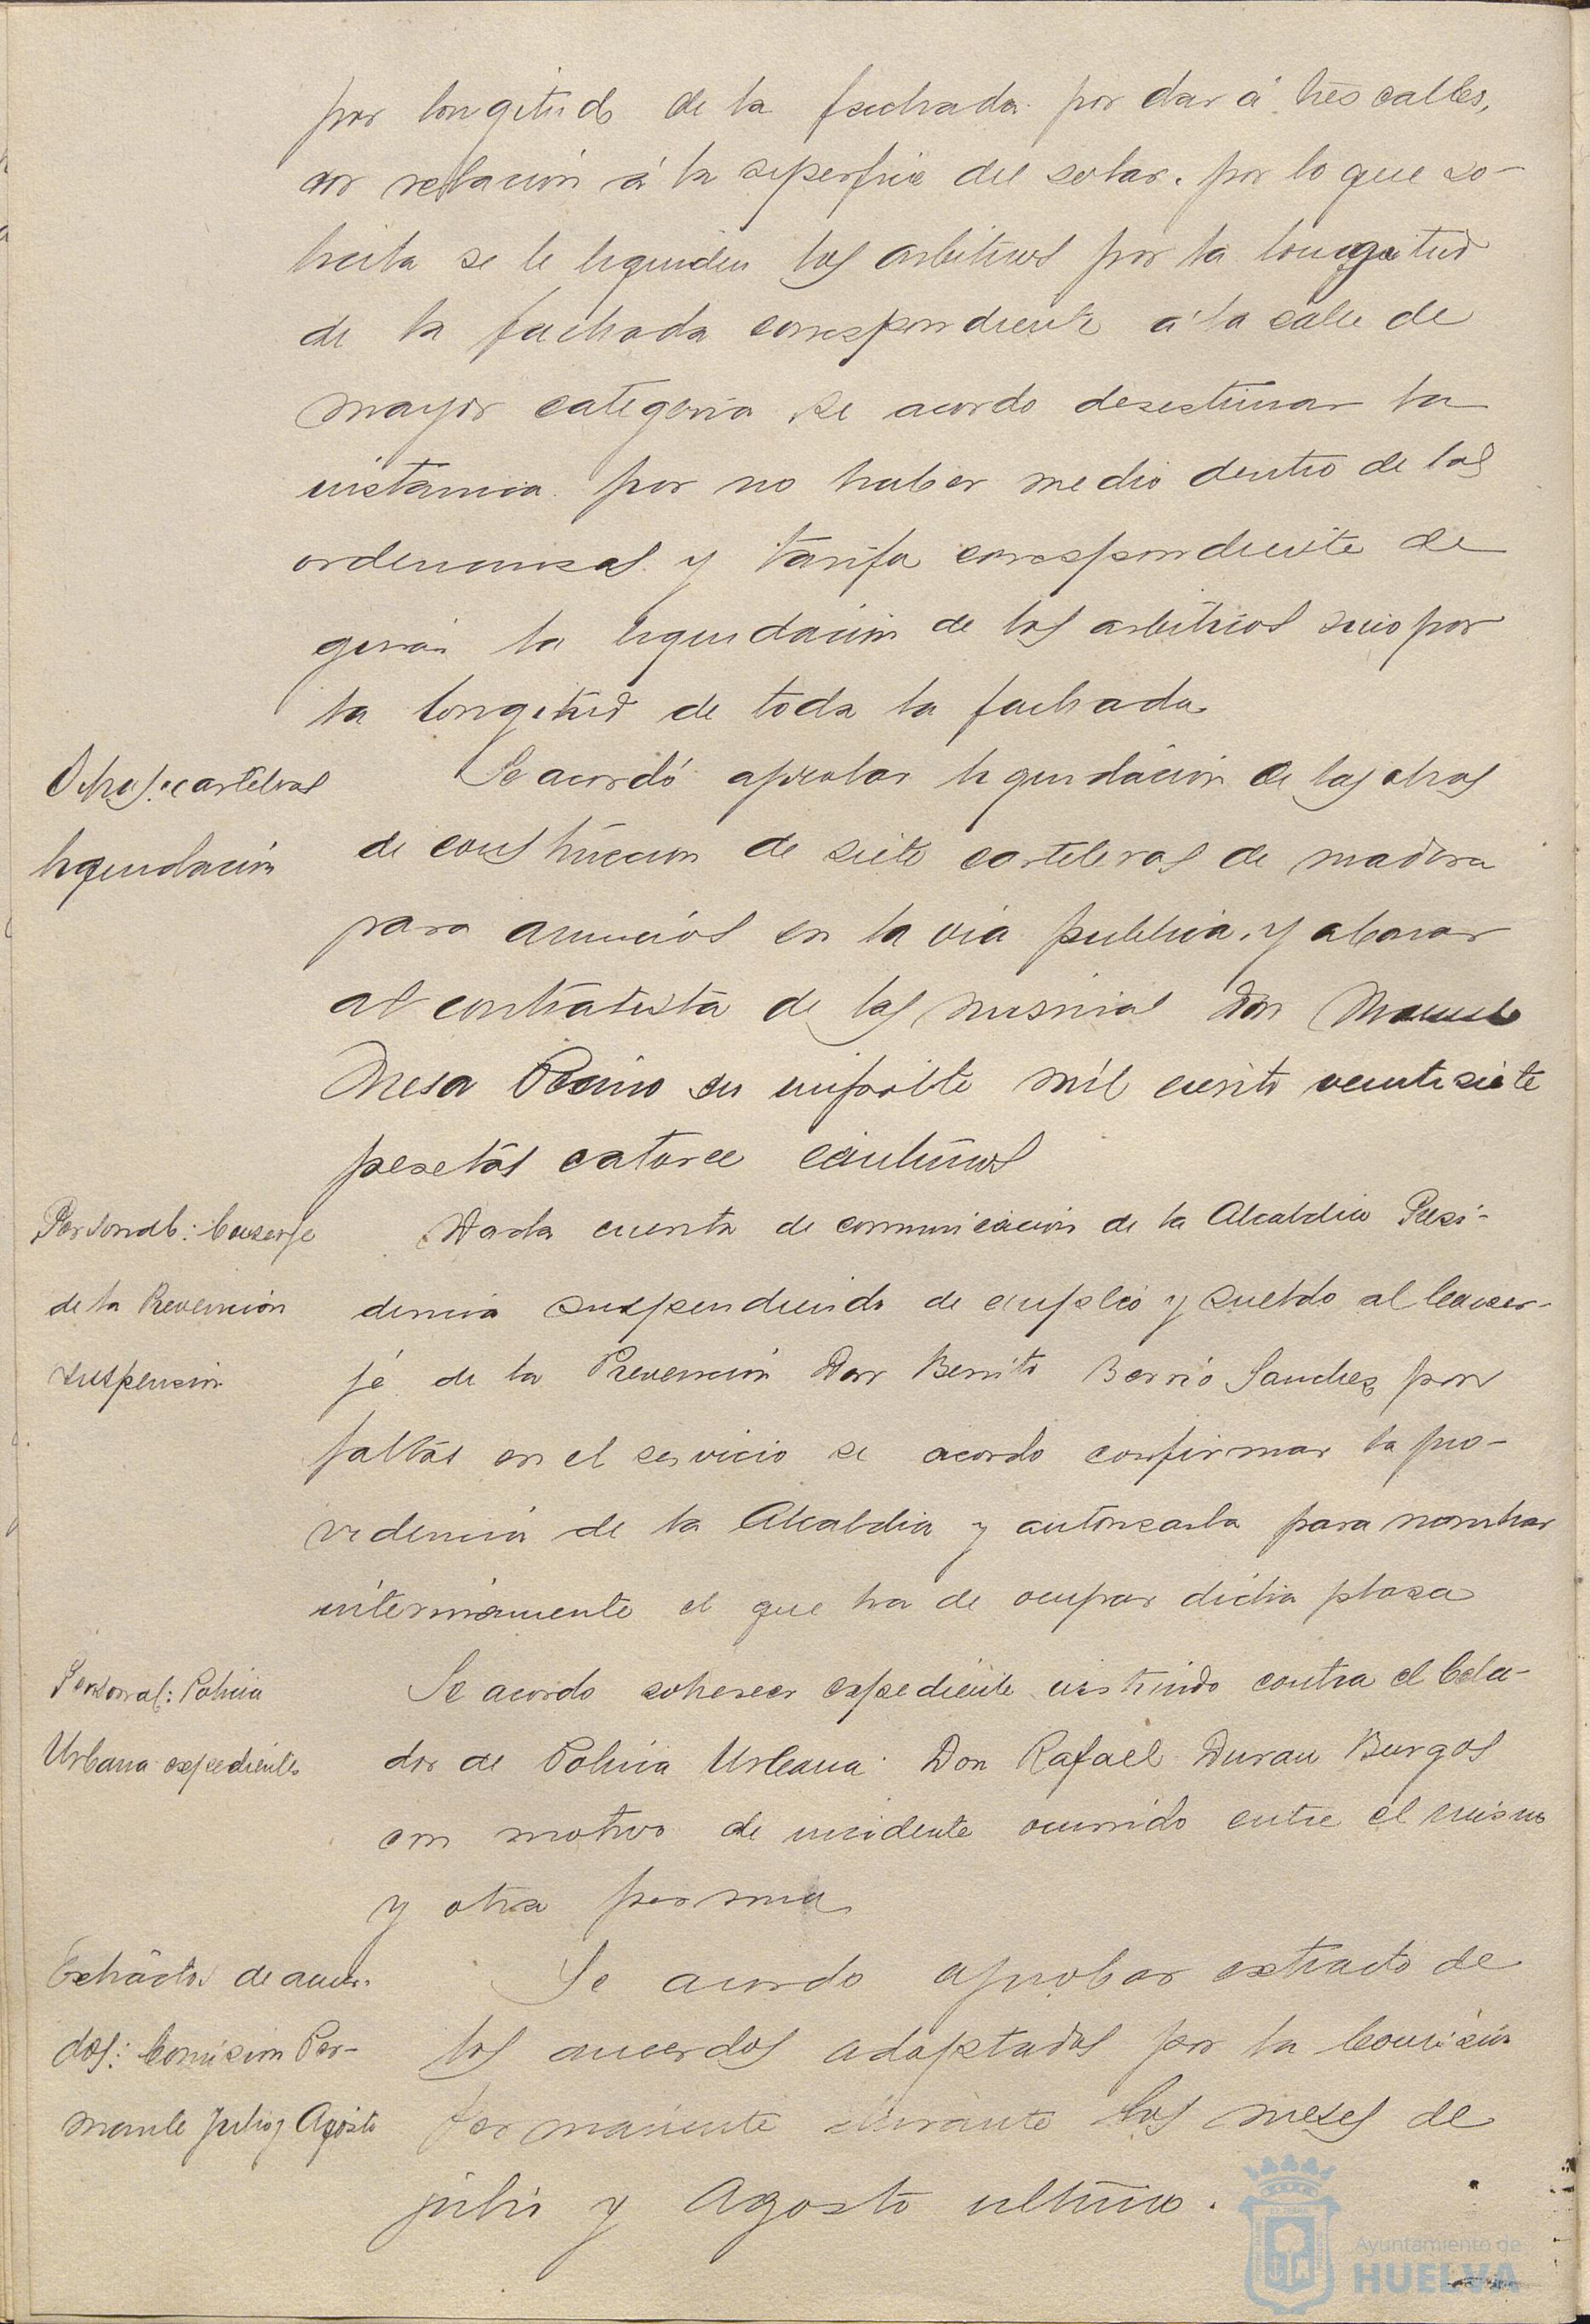 por longitud de la fachada por dar á tres calles,
con relación á la superficie del solar. por lo que so-
licita se le liquiden los arbitrios por la longitud
de la fachada correspondiente á la calle de
mayor categoria se acordo desestimar la
instancia por no haber medio dentro de las
ordenanzas y tarifa correspondiente de
girar la liquidación de los arbitrios sino por
la longitud de toda la fachada
Obras: carteleras
liquidación
Se acordó aprobar liquidación de las obras
de construccion de siete carteleras de madera
para anuncios en la via publica, y abonar
al contratista de las mismas Don Manuel
Mesa su importe mil ciento veintisiete
pesetas catorce centimos
Personal: Conserje
de la Prevención
suspensión
Dada cuenta de comunicación de la Alcaldia Presi-
dencia suspendiendo de empleo y sueldo al Conser-
je de la Prevención Don Benito Berrio Sanchez por
faltas en el servicio se acordo confirmar la pro-
videncia de la Alcaldia y autorizarla para nombrar
interinamente el que ha de ocupar dicha plaza
Personal: Policia
Urbana expediente
Se acordo sobreseer expediente instruido contra el Cela-
dor de Policia Urbana Don Rafael Duran Burgos
con motivo de incidente ocurrido entre el mismo
y otra persona
Extracto de acuer-
dos: Comision Per-
manente Julio y Agosto
Se acordo aprobar extracto de
los acuerdos adoptados por la Comisión
Permanente durante los meses de
julio y Agosto ultimo.
Ayuntamiento de
HUELVA